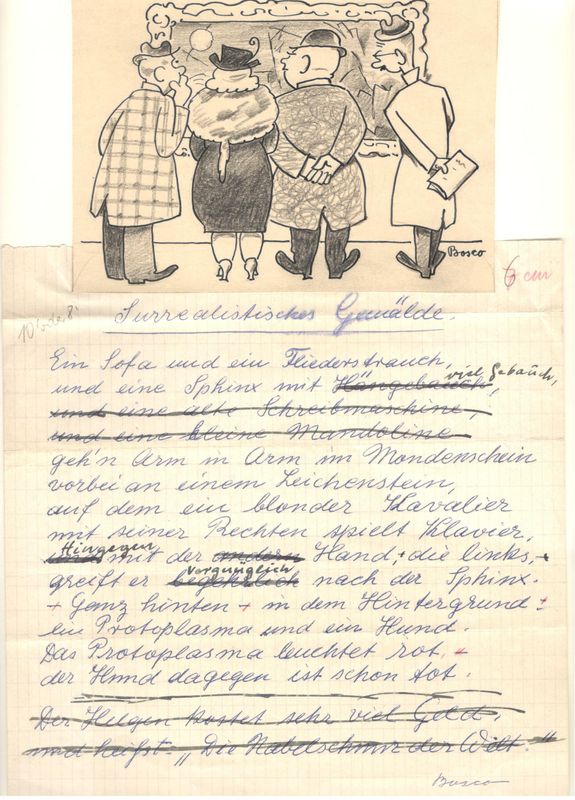 Bosco
6 cm
Surrealistisches Gemälde.
Ein Sofa und ein Fliederstrauch,
viel Gebäuch,
und eine Sphinx mit Hängebauch,
und eine alte Schreibmaschine,
und eine kleine Mandoline
geh'n Arm in Arm im Mondenschein
vorbei an einem Leichenstein,
auf dem ein blonder Kavalier
mit seiner Rechten spielt Klavier,
Hingegen
und mit der andern Hand, die links,
vorzüglich
greift er begehrlich nach der Sphinx.
Ganz hinten in dem Hintergrund
ein Protoplasma und ein Hund.
Das Protoplasma leuchtet rot,
der Hund dagegen ist schon tot.
Der Helgen kostet sehr viel Geld,
und heißt: „Die Nabelschnur der Welt."
Bosco